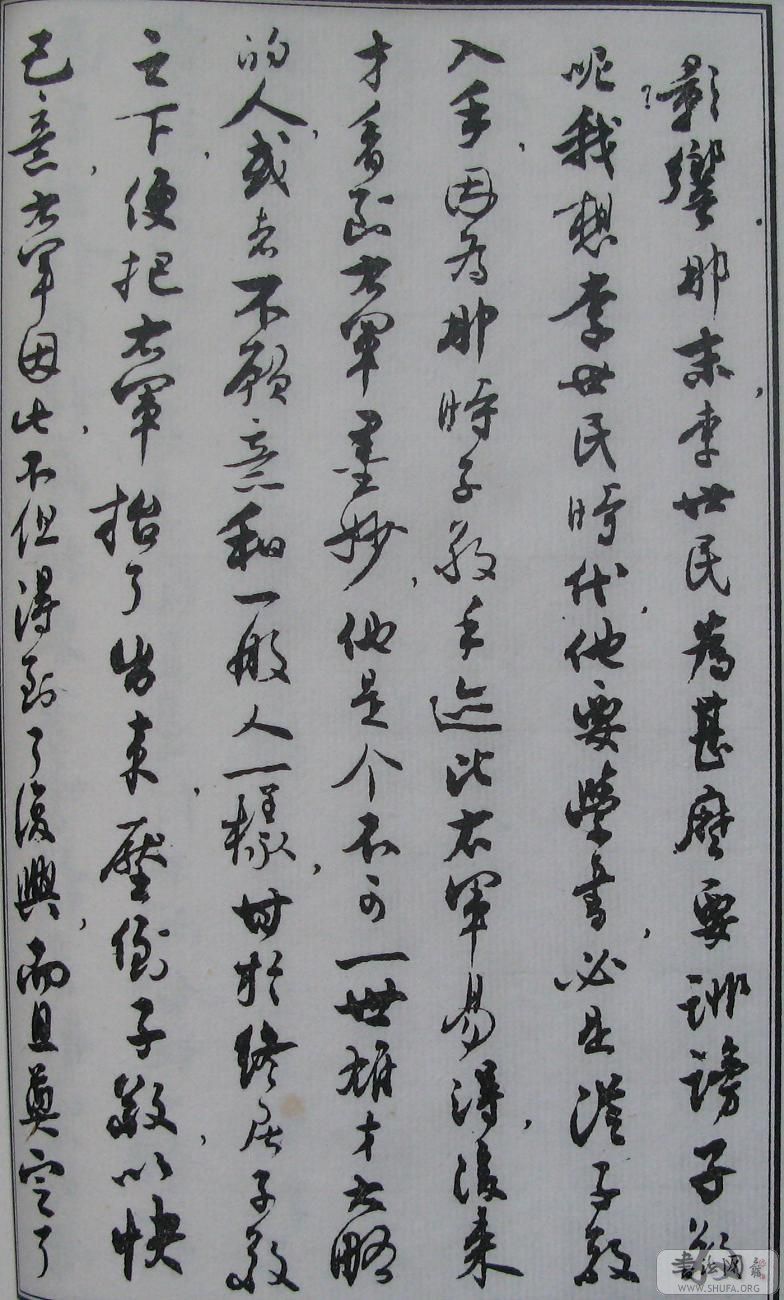 影響，那末，李世民為甚麼要誹謗子敬
呢？我想李世民時代，他要學書，必是從子敬
入手，因為那時子敬手迹比右軍易得，後來
才看到右軍墨妙，他是个不可一世雄才大略
的人，或者不願意和一般人一樣，甘於終居子敬
之下，便把右軍抬了出來，壓倒子敬，以快
己意，右軍因此，不但得到了復興，而且奠定了
書法网
WWW.SHUFA.ORG